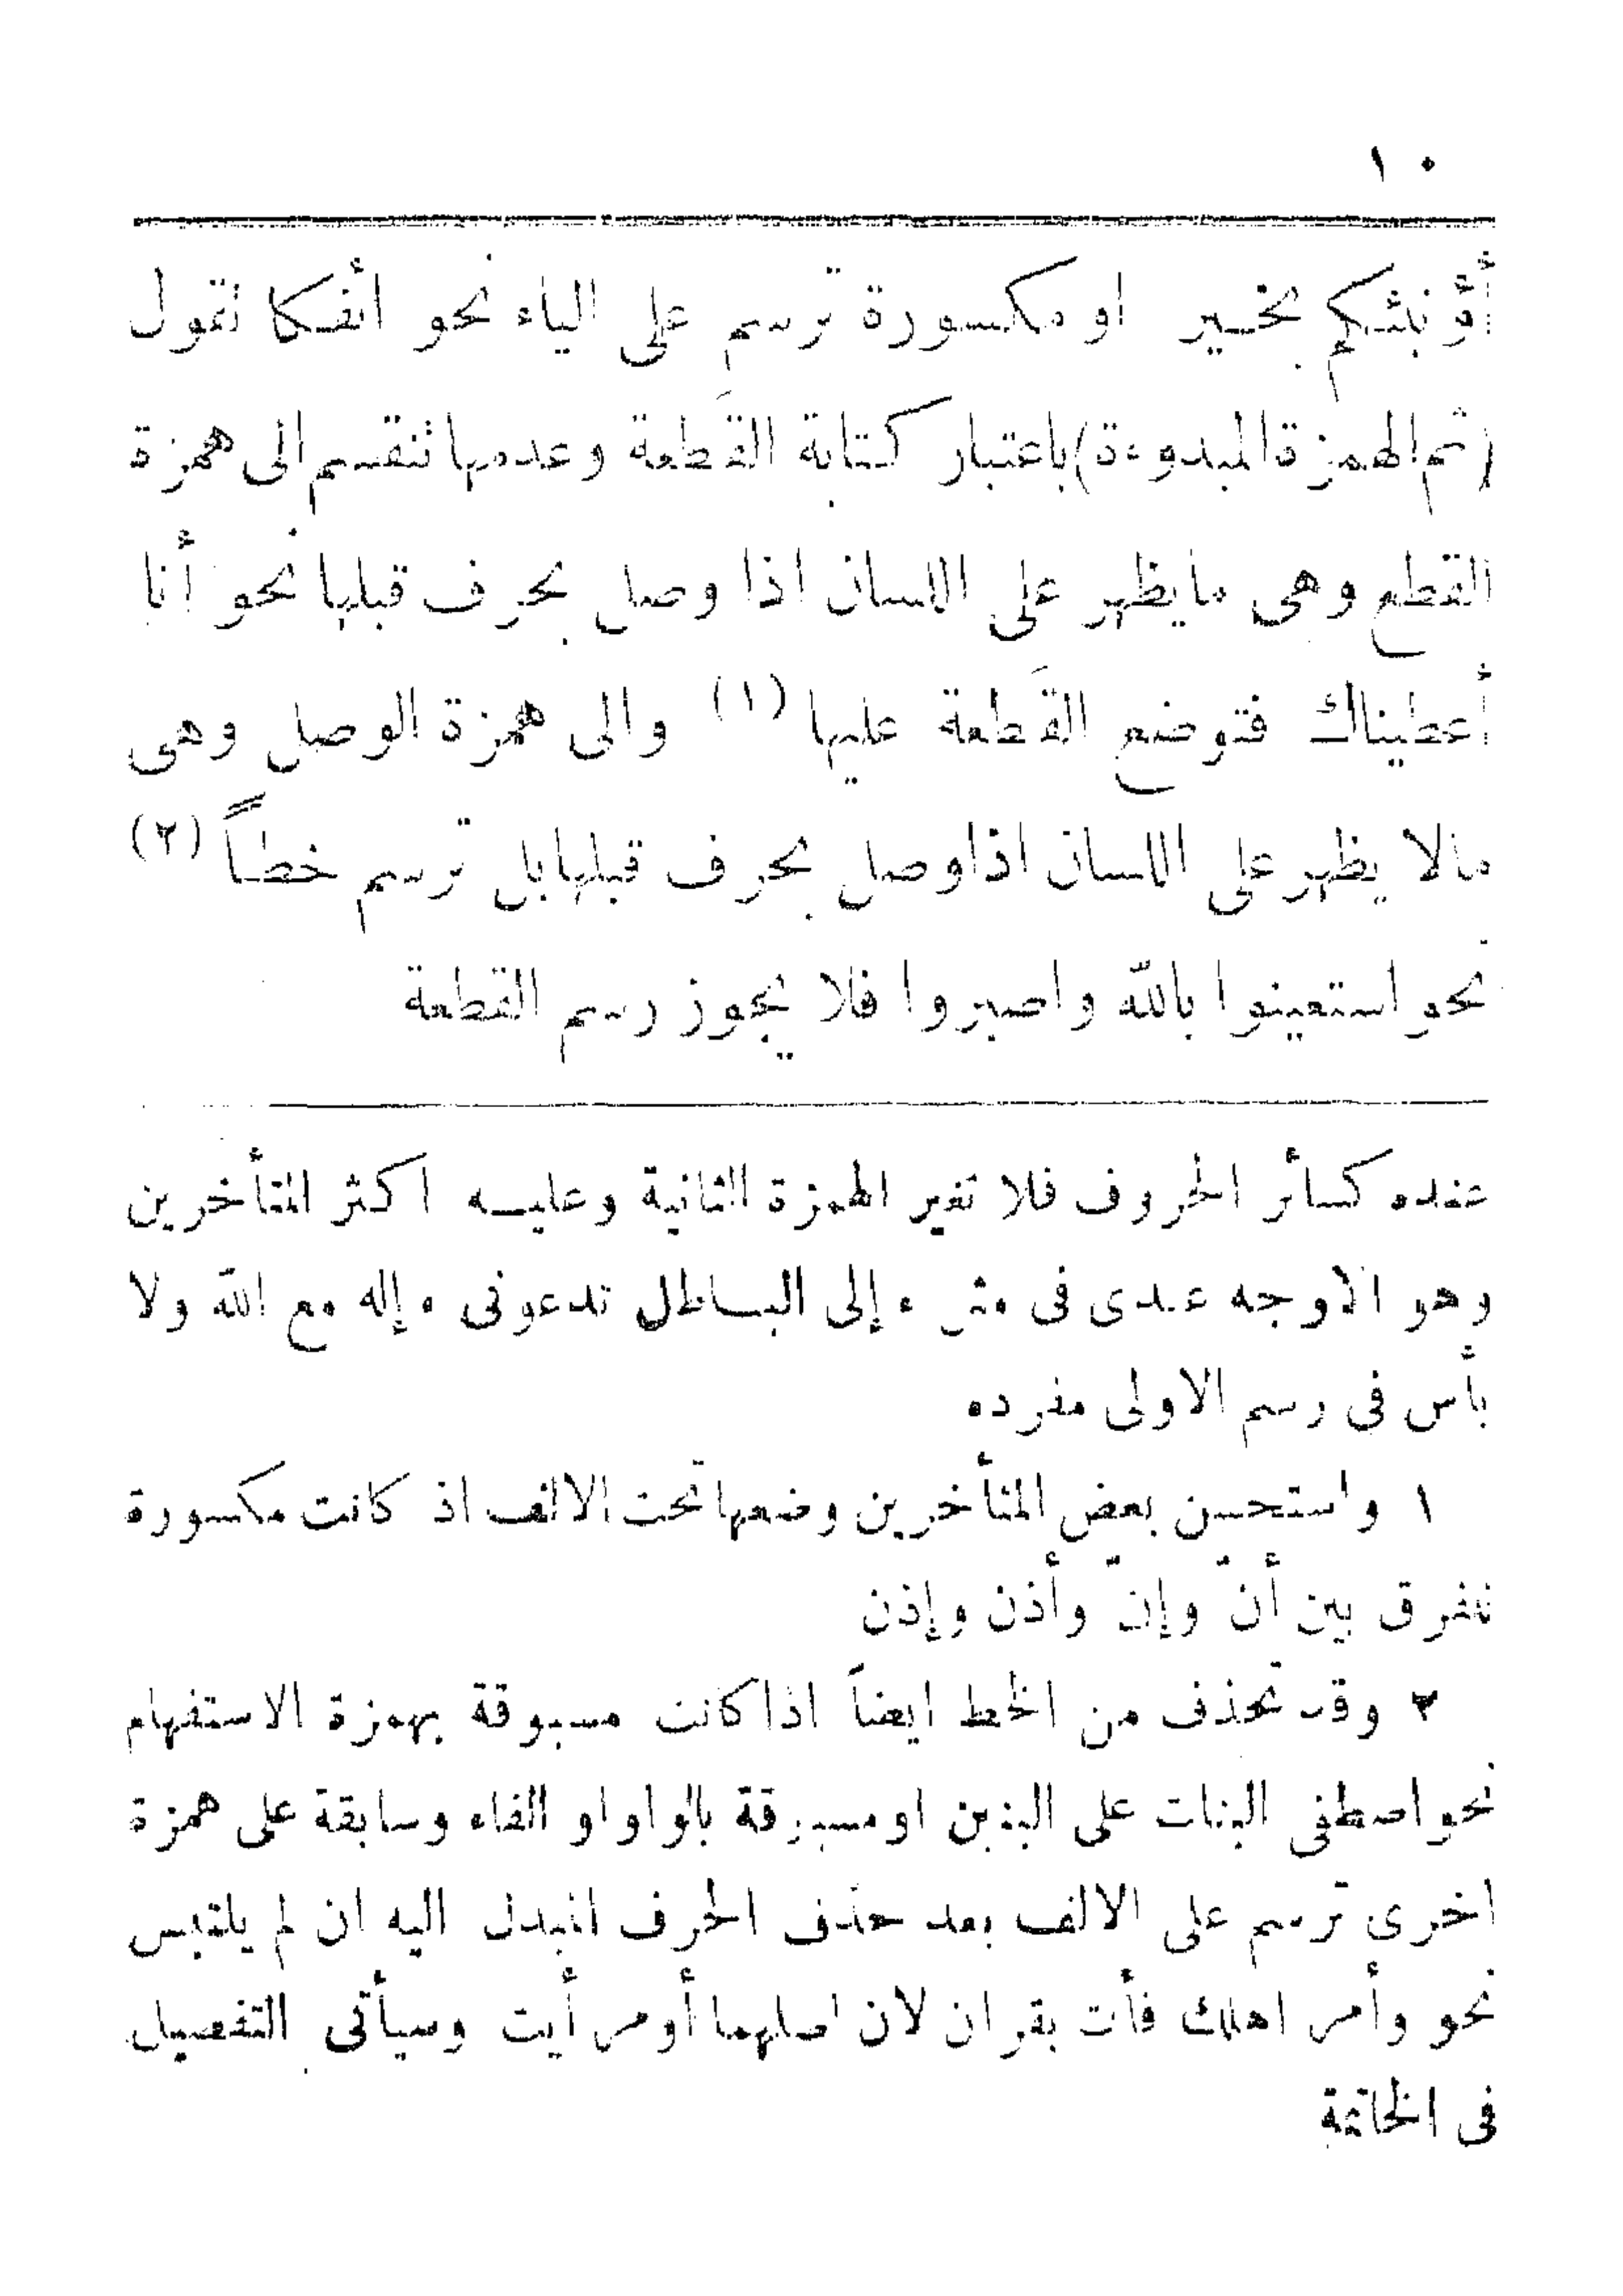 ١٠
أؤنبئكم بخير او مكسورة ترسم على الياء نحو أئفكا تقول
(ثم الهمزة المبدوءة) باعتبار كتابة القَطعة وعدمها تنقسم الى همزة
القطع وهى ما يظهر على اللسان اذا وصل بحرف قبلها نحو أنا
أعطيناك فتوضع القَطعة عليها (١) والى همزة الوصل وهى
مالا يظهر على اللسان اذا وصل بحرف قبلها بل ترسم خطاً (٢)
نحو استعينوا بالله واصبروا فلا يجوز رسم القطعة
عنده كسأر الحروف فلا تغير الهمزة الثانية وعليه اكثر المتأخرين
وهو الاوجه عندى فى مثل ء إلى الباطل تدعونى ء إله مع الله ولا
بأس فى رسم الاولى مفرده
١ واستحسن بعض المتأخرين وضعها تحت الالف اذ كانت مكسورة
للفرق بين أنّ وإنّ وأذن وإذن
٢ وقد تحذف من الخط ايضاً اذا كانت مسبوقة بهمزة الاستفهام
نحو اصطفى البنات على البنين او مسبوقة بالواو او الفاء وسابقة على همزة
اخرى ترسم على الالف بعد حذف الحرف المبدل اليه ان لم يلتبس
نحو وأمر اهلك فأت بقران لان اصلهما أومر أيت وسيأتى التفصيل
فى الخاتمة